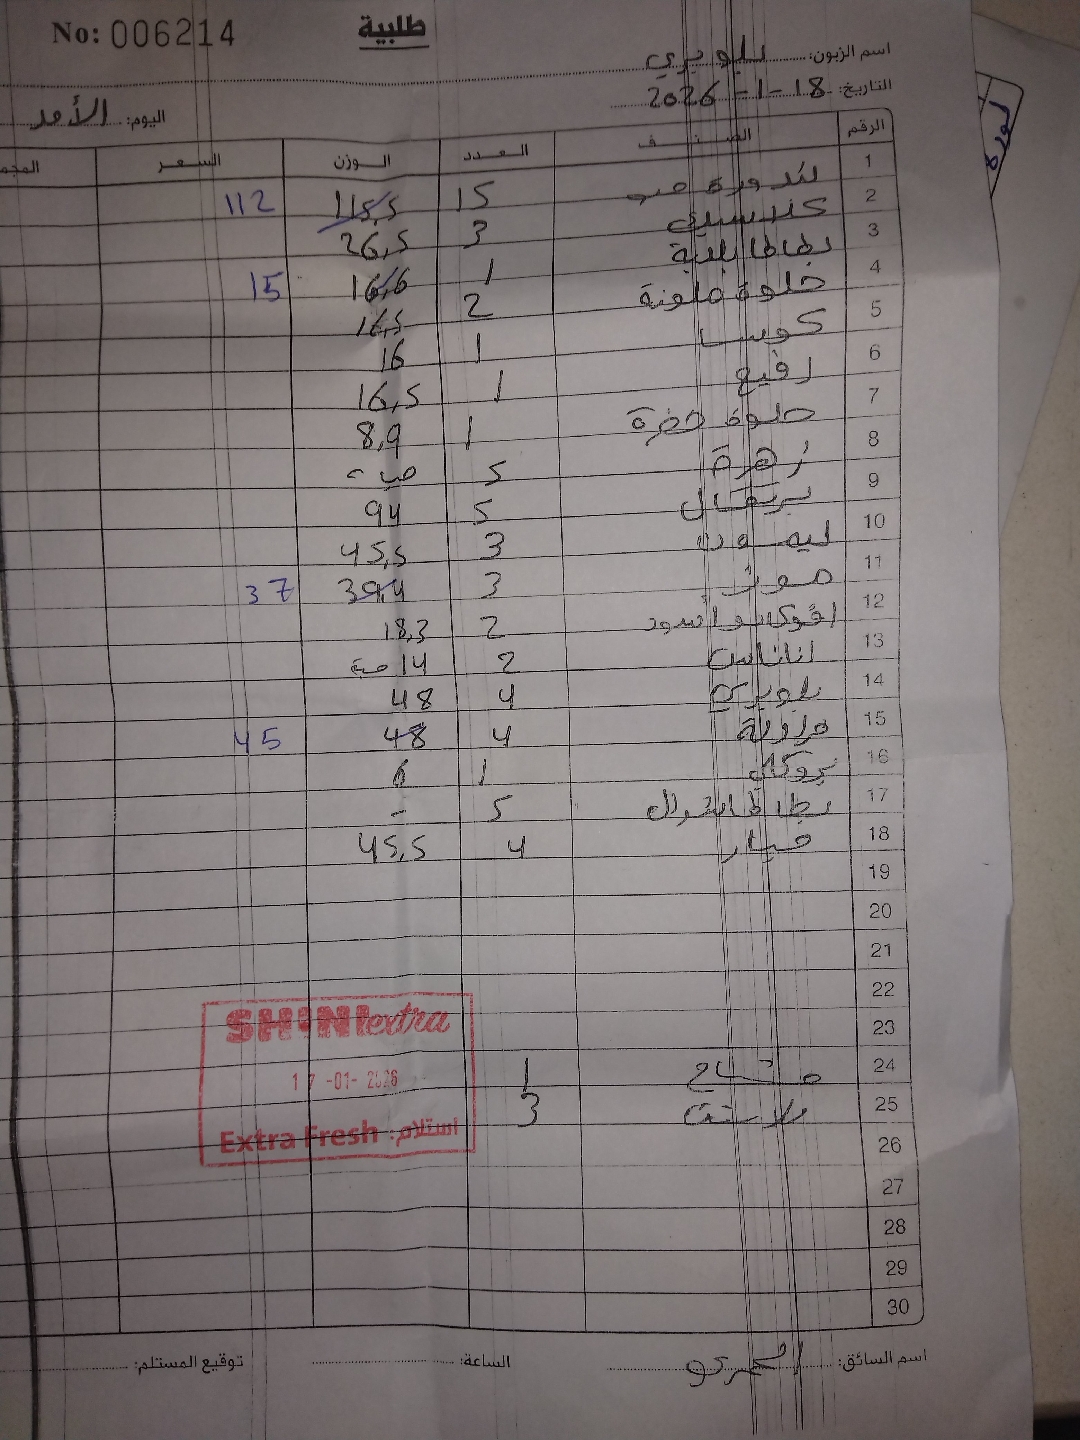 No: 006214 طلبية
اسم الزبون: بلوبيري
التاريخ: 18-1-2026
اليوم: الأحد
الرقم الصنف العدد الوزن السعر المجم
1 بندورة حب 15 115,5 112
2 كلاسيك 3 26,5
3 بطاطا بلدية 1 16,6 15
4 حلوة ملونة 2 16,5
5 كوسا 1 16
6 رفيع 1 16,5
7 حلوة خضرة 1 8,9
8 زهرة 5 حبة
9 برتقال 5 94
10 ليمون 3 45,5
11 موز 3 39,4 37
12 افوكادو أسود 2 18,3
13 اناناس 2 14 حبة
14 بلوبيري 4 48
15 فراولة 4 48 45
16 بروكلي 1 6
17 بطاطا 5 -
18 خيار 4 45,5
19
20
21
22
23
24 مشاح 1
25 بلاستك 3
26
27
28
29
30
SHINI extra
17-01-2026
Extra Fresh استلام:
اسم السائق: الساعة: توقيع المستلم: